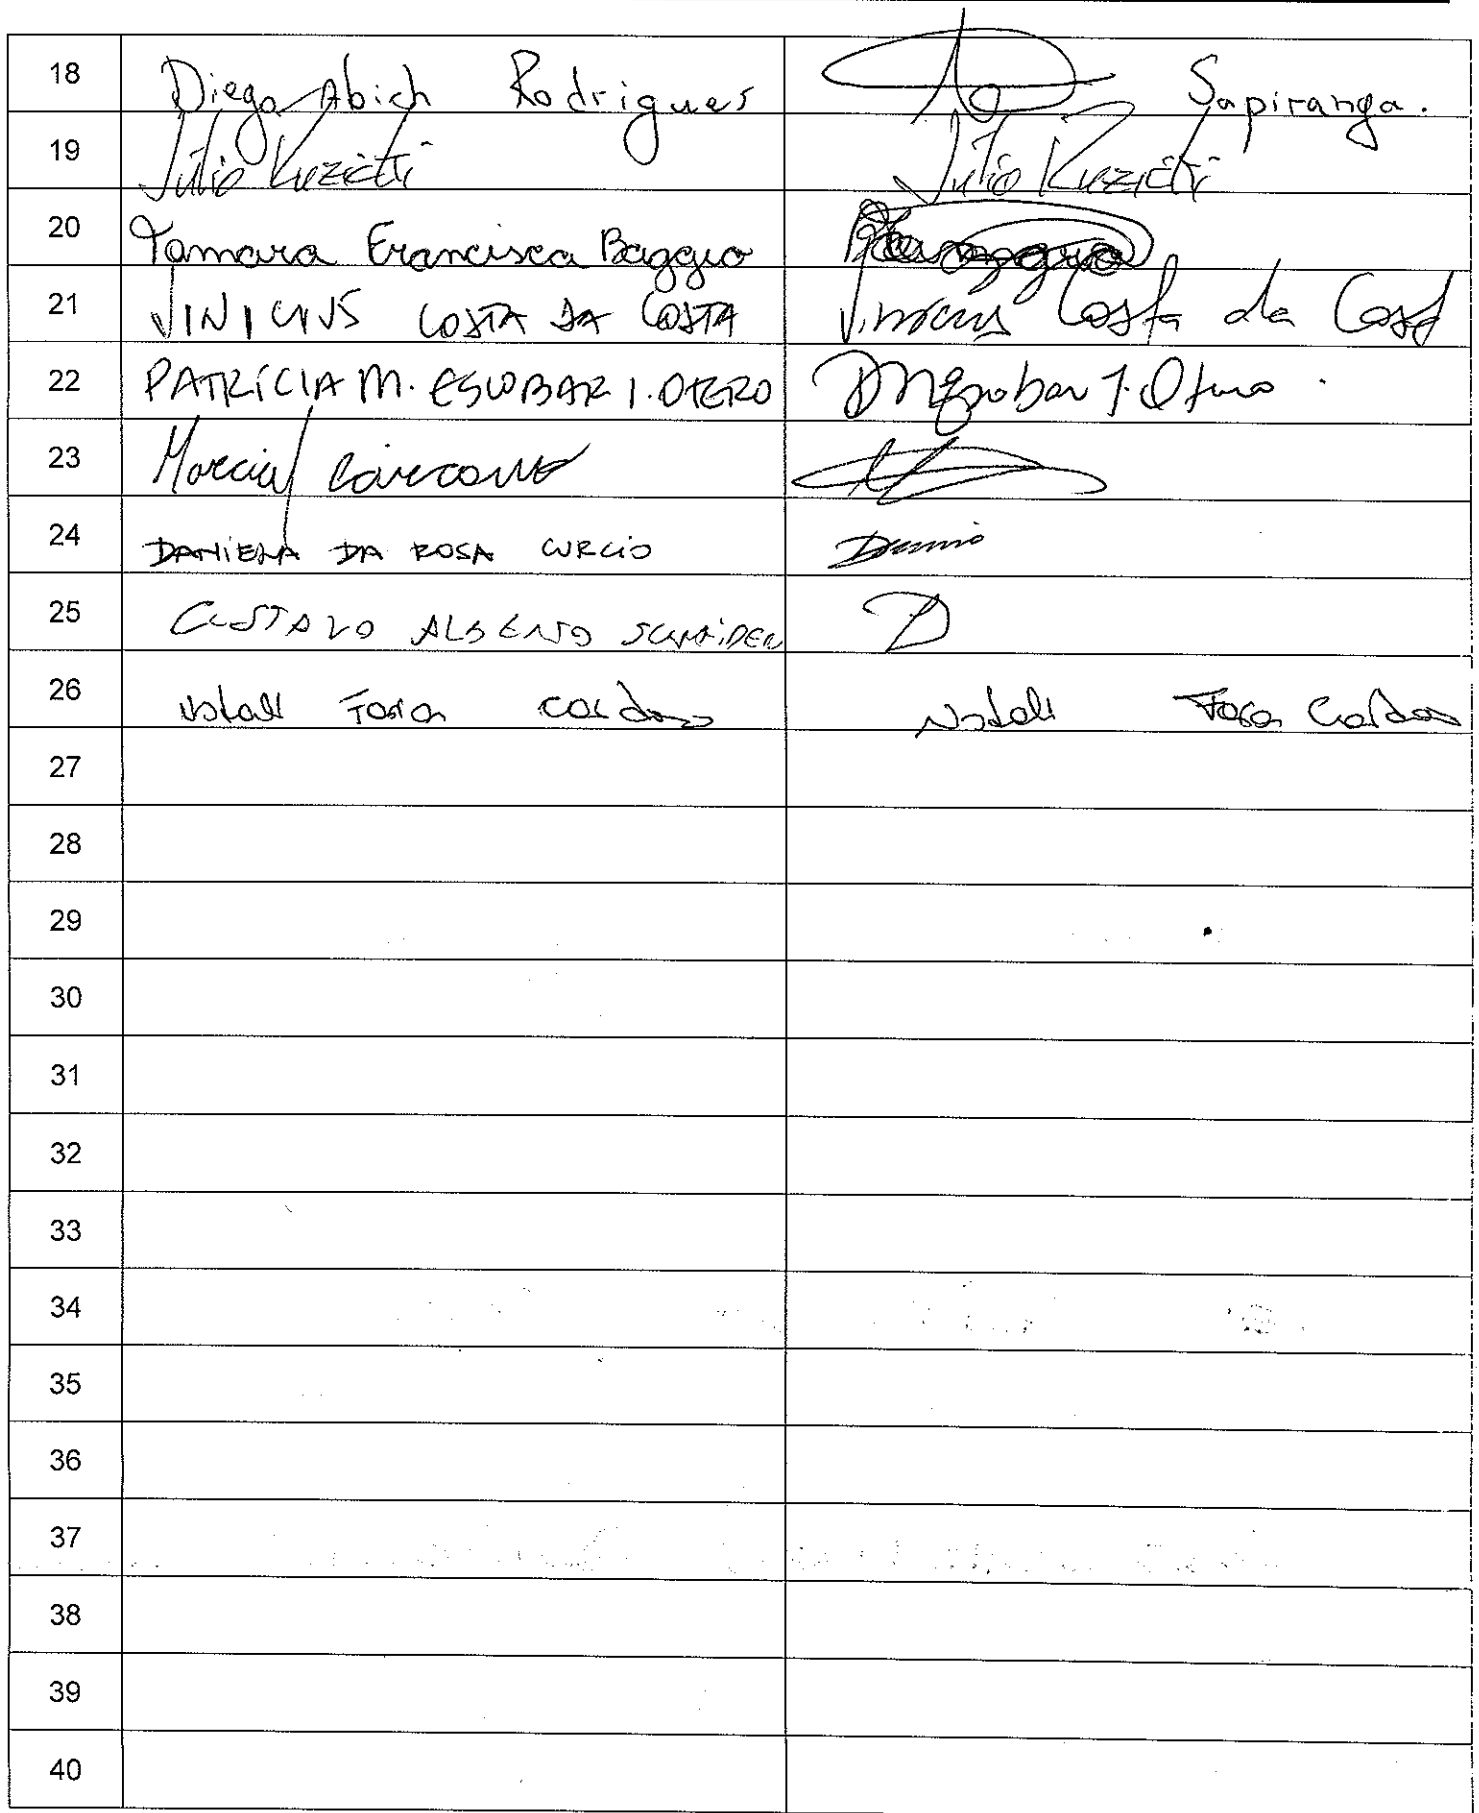 18 Diego Abich Rodrigues Sapiranga.
19 Júlio Kuziatti Júlio Kuziatti
20 Tamara Francisca Baggio
21 VINICIUS COSTA DA COSTA Vinicius Costa da Cost
22 PATRÍCIA M. ESCOBAR I. OTERO PMEscobar I. Otero
23 Marcial
24 DANIELA DA ROSA CURCIO
25 GUSTAVO ALBERTO SCHNEIDER
26 Natali Cardoso Natali Cardoso
27
28
29
30
31
32
33
34
35
36
37
38
39
40